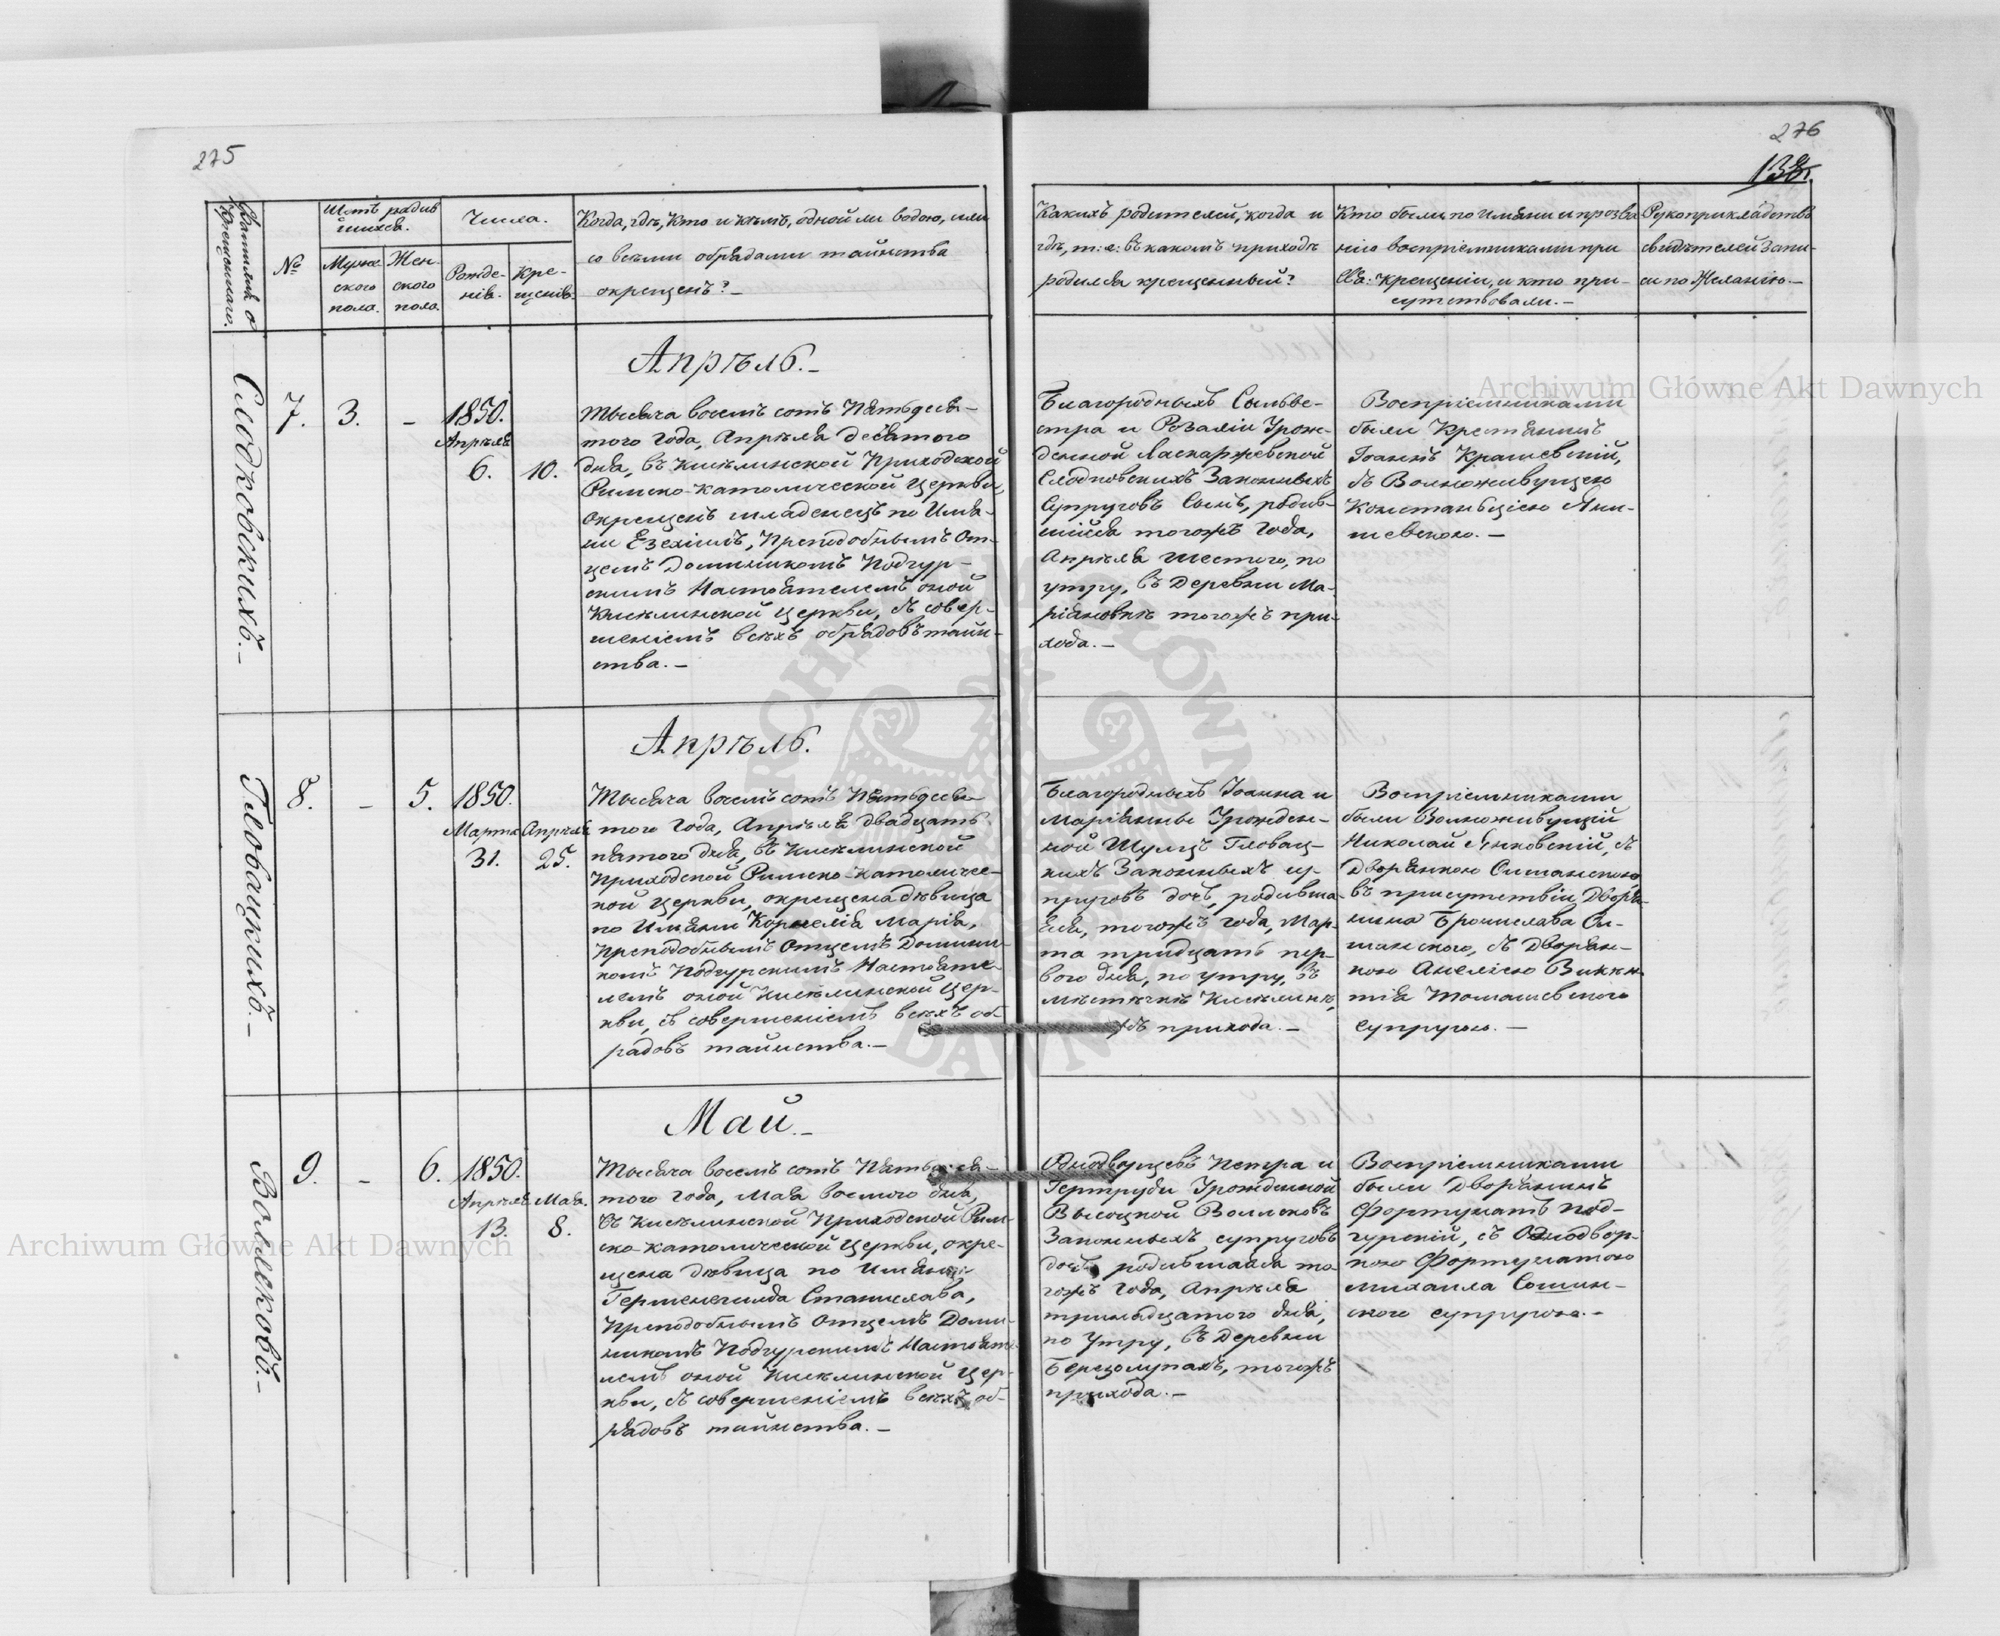 275
276
138.
Фамилія о
Крещеннаго.
№
Щотъ родив
шихся.
Муже-
ского
пола.
Жен-
ского
пола.
Числа.
Рожде-
нія.
Кре-
щенія.
Когда, гдѣ, Кто и кѣмъ, одной ли водою, или
со всѣми обрядами таинства
окрещенъ? —
Какихъ родителей, когда и
гдѣ, т: е: въ какомъ приходѣ
родился крещенный?
Кто были по имяни и прозва
нію воспріемниками при
Св: Крещеніи, и кто при-
сутствовали. —
Рукоприкладство
свидѣтелей запи-
си по Желанію. —
Слодковскихъ. —
7.
3.
—
1850.
Апрѣля
6.
10.
Апрѣль. —
Тысяча восемъ сотъ Пятьдеся-
того Года, Апрѣля десятого
дня, въ Киселинской Приходской
Римско-Католической Церкви,
окрещенъ младенецъ по Имя-
ни Езехіилъ, Преподобнымъ От-
цемъ Доминикомъ Подгур-
скимъ Настоятелемъ оной
Киселинской Церкви, съ совер-
шеніемъ всѣхъ обрядовъ таин-
ства. —
Благородныхъ Сильве-
стра и Розаліи Урож-
денной Ласкаржевской
Слодковскихъ Законныхъ
Супруговъ Сынъ, родив-
шійся тогожъ Года,
Апрѣля шестого, по
утру, въ Деревни Ма-
ріяновкѣ тогожъ при-
хода. —
Воспріемниками
были Крестянинъ
Іоаннъ Крашевскій,
съ Вольноживущею
Констанціею Яни-
шевскою. —
Гловацкихъ. —
8.
—
5.
1850.
Марта
31.
Апрѣля
25.
Апрѣль.
Тысяча восемъ сотъ Пятьдеся-
того Года, Апрѣля двадцать
пятого дня, въ Киселинской
Приходской Римско-Католичес-
кой Церкви, окрещена дѣвица
по Имяни Корнелія Марія,
Преподобнымъ Отцемъ Домини-
комъ Подгурскимъ Настояте-
лемъ оной Киселинской Цер-
кви, съ совершеніемъ всѣхъ об-
рядовъ таинства. —
Благородныхъ Іоанна и
Маріянны Урожден-
ной Шульцъ Гловац-
кихъ Законныхъ су-
пруговъ дочь, родивша-
яся, тогожъ Года, Мар-
та тридцать пер-
вого дня, по утру, въ
Мѣстечкѣ Киселинѣ,
прихода. —
Воспріемниками
были Вольноживущій
Николай Янковскій, съ
Дворянкою Симанскою
въ присутствіи Дворя-
нина Бронислава Си-
манского, съ Дворян-
кою Анеліею Викен-
тія Томашевского
супругою. —
Волисковъ. —
9.
—
6.
1850.
Апрѣля
13.
Мая.
8.
Май. —
Тысяча восемъ сотъ Пятьдеся-
того Года, Мая восмого дня,
въ Киселинской Приходской Рим-
ско-Католической Церкви, окре-
щена дѣвица по Имяни
Герменегильда Станислава,
Преподобнымъ Отцемъ Доми-
никомъ Подгурскимъ Настояте-
лемъ оной Киселинской Цер-
кви, съ совершеніемъ всѣхъ об-
рядовъ таинства. —
Однодворцевъ Петра и
Гертруды Урожденной
Высоцкой Волисковъ
Законныхъ супруговъ
дочь родившаяся то-
гожъ Года, Апрѣля
тринадцатого дня,
по Утру, въ Деревни
Березолупахъ, тогожъ
прихода. —
Воспріемниками
были Дворянинъ
Фортунатъ Под-
гурскій, съ Однодвор-
кою Фортунатою
Михаила Сошин-
ского супругою. —
Archiwum Główne Akt Dawnych
Archiwum Główne Akt Dawnych